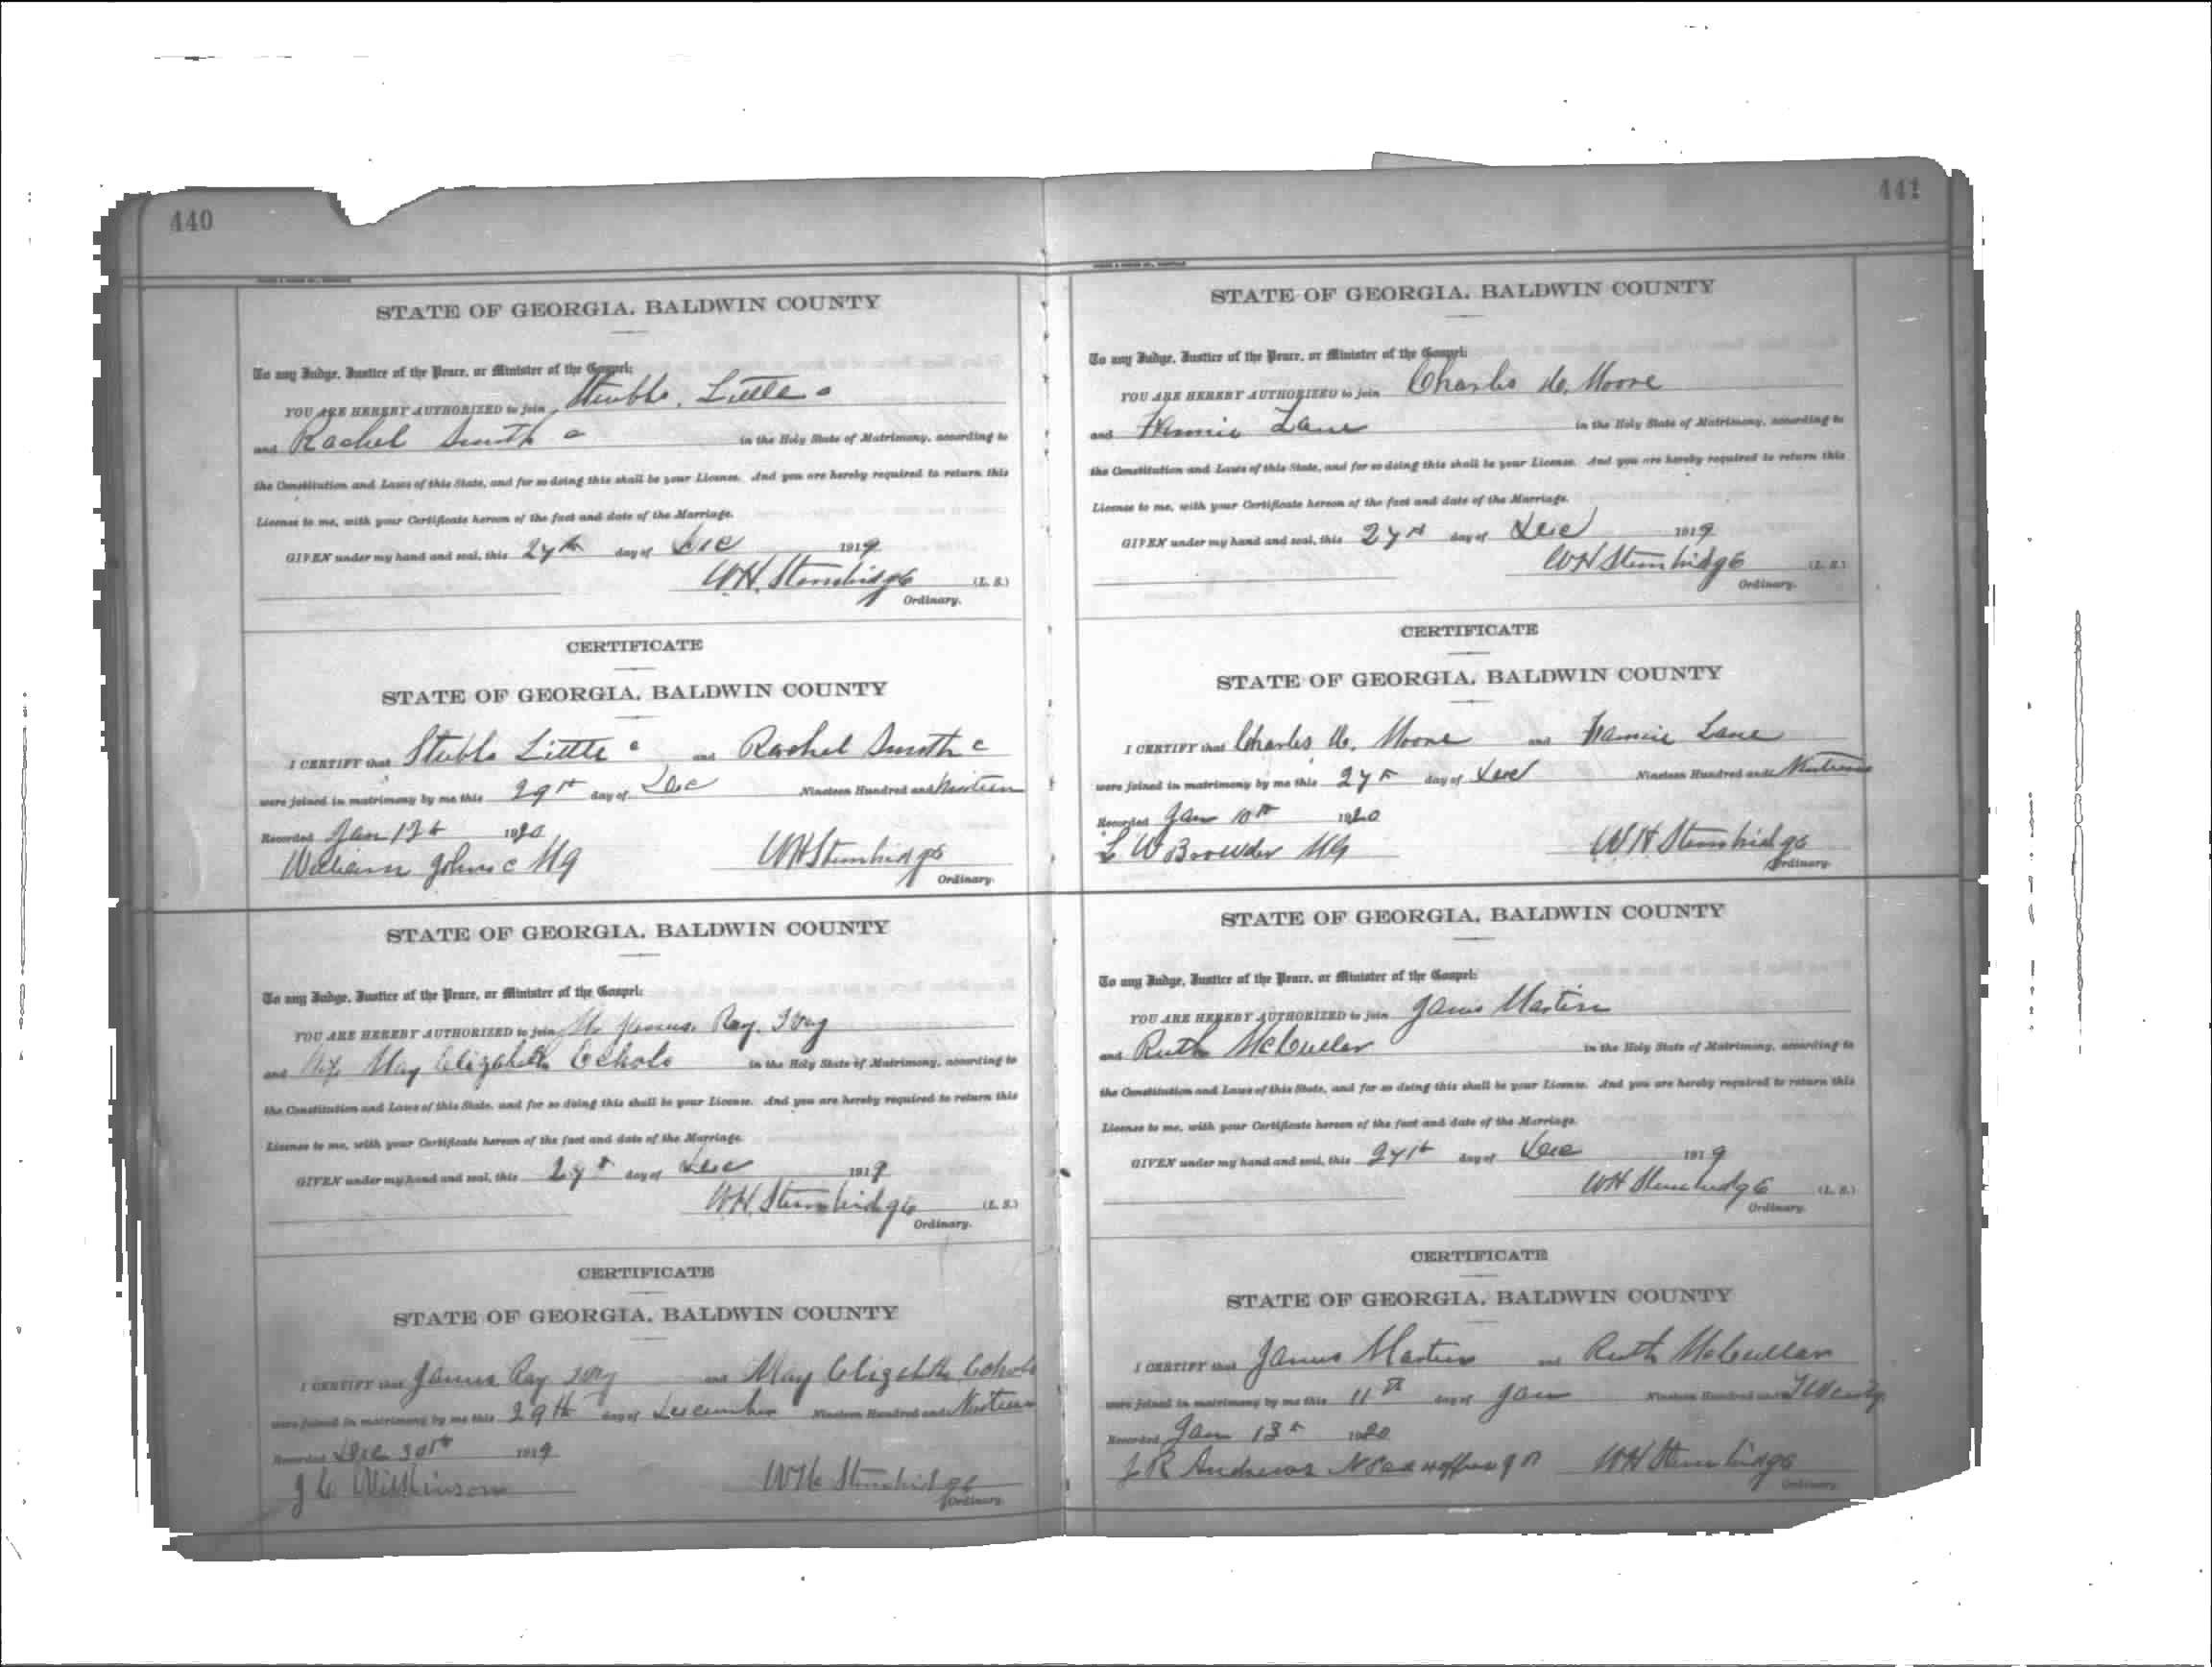 440
STATE OF GEORGIA, BALDWIN COUNTY
To any Judge, Justice of the Peace, or Minister of the Gospel:
YOU ARE HEREBY AUTHORIZED to join Stubbs Little c
and Rachel Smith c in the Holy State of Matrimony, according to
the Constitution and Laws of this State, and for so doing this shall be your License. And you are hereby required to return this
License to me, with your Certificate hereon of the fact and date of the Marriage.
GIVEN under my hand and seal, this 27th day of Dec 1919
W.H. Stembridge (L. S.)
Ordinary.
CERTIFICATE
STATE OF GEORGIA, BALDWIN COUNTY
I CERTIFY that Stubbs Little c and Rachel Smith c
were joined in matrimony by me this 29th day of Dec Nineteen Hundred and Nineteen
Recorded Jan 1920
William Johns c MG WH Stembridge
Ordinary.
STATE OF GEORGIA, BALDWIN COUNTY
To any Judge, Justice of the Peace, or Minister of the Gospel:
YOU ARE HEREBY AUTHORIZED to join Mr James Ray Ivey
and May Elizabeth Echols in the Holy State of Matrimony, according to
the Constitution and Laws of this State, and for so doing this shall be your License. And you are hereby required to return this
License to me, with your Certificate hereon of the fact and date of the Marriage.
GIVEN under my hand and seal, this 27th day of Dec 1919
W.H. Stembridge (L. S.)
Ordinary.
CERTIFICATE
STATE OF GEORGIA, BALDWIN COUNTY
I CERTIFY that James Ray Ivey and May Elizabeth Echols
were joined in matrimony by me this 29th day of December Nineteen Hundred and Nineteen
Recorded Dec 30th 1919
J C Wilkinson WH Stembridge
Ordinary.
441
STATE OF GEORGIA, BALDWIN COUNTY
To any Judge, Justice of the Peace, or Minister of the Gospel:
YOU ARE HEREBY AUTHORIZED to join Charles H. Moore
and Fannie Lane in the Holy State of Matrimony, according to
the Constitution and Laws of this State, and for so doing this shall be your License. And you are hereby required to return this
License to me, with your Certificate hereon of the fact and date of the Marriage.
GIVEN under my hand and seal, this 27th day of Dec 1919
WH Stembridge (L. S.)
Ordinary.
CERTIFICATE
STATE OF GEORGIA, BALDWIN COUNTY
I CERTIFY that Charles H. Moore and Fannie Lane
were joined in matrimony by me this 27th day of Dec Nineteen Hundred and Nineteen
Recorded Jan 10th 1920
L W Browder MG WH Stembridge
Ordinary.
STATE OF GEORGIA, BALDWIN COUNTY
To any Judge, Justice of the Peace, or Minister of the Gospel:
YOU ARE HEREBY AUTHORIZED to join James Martin
and Ruth McCullar in the Holy State of Matrimony, according to
the Constitution and Laws of this State, and for so doing this shall be your License. And you are hereby required to return this
License to me, with your Certificate hereon of the fact and date of the Marriage.
GIVEN under my hand and seal, this 27th day of Dec 1919
WH Stembridge (L. S.)
Ordinary.
CERTIFICATE
STATE OF GEORGIA, BALDWIN COUNTY
I CERTIFY that James Martin and Ruth McCullar
were joined in matrimony by me this 11th day of Jan Nineteen Hundred and Twenty
Recorded Jan 13th 1920
J R Andrews WH Stembridge
Ordinary.